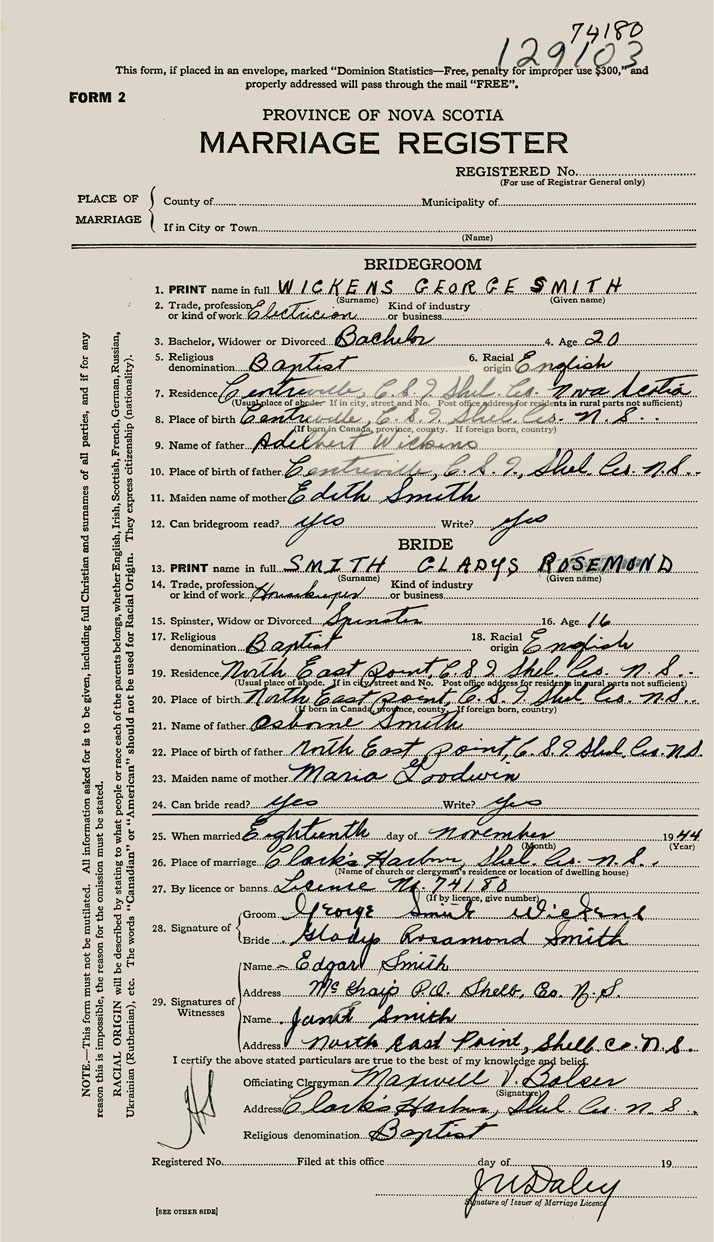 74180
129103
This form, if placed in an envelope, marked “Dominion Statistics—Free, penalty for improper use $300,” and
properly addressed will pass through the mail “FREE”.
FORM 2
PROVINCE OF NOVA SCOTIA
MARRIAGE REGISTER
REGISTERED No.
(For use of Registrar General only)
PLACE OF MARRIAGE
County of Municipality of
If in City or Town
(Name)
BRIDEGROOM
1. PRINT name in full WICKENS GEORGE SMITH
(Surname) (Given name)
2. Trade, profession or kind of work Electrician Kind of industry or business
3. Bachelor, Widower or Divorced Bachelor 4. Age 20
5. Religious denomination Baptist 6. Racial origin English
7. Residence Centreville, C.S.I. Shel. Co. Nova Scotia
(Usual place of abode. If in city, street and No. Post office address for residents in rural parts not sufficient)
8. Place of birth Centreville, C.S.I. Shel. Co. N.S.
(If born in Canada, province, county. If foreign born, country)
9. Name of father Adelbert Wickens
10. Place of birth of father Centreville, C.S.I., Shel. Co. N.S.
11. Maiden name of mother Edith Smith
12. Can bridegroom read? yes Write? yes
BRIDE
13. PRINT name in full SMITH GLADYS ROSEMOND
(Surname) (Given name)
14. Trade, profession or kind of work Housekeeper Kind of industry or business
15. Spinster, Widow or Divorced Spinster 16. Age 16
17. Religious denomination Baptist 18. Racial origin English
19. Residence North East point, C.S.I Shel. Co. N.S.
(Usual place of abode. If in city, street and No. Post office address for residents in rural parts not sufficient)
20. Place of birth North East point, C.S.I Shel. Co. N.S.
(If born in Canada, province, county. If foreign born, country)
21. Name of father Osborne Smith
22. Place of birth of father North East point, C.S.I Shel. Co. N.S.
23. Maiden name of mother Maria Goodwin
24. Can bride read? yes Write? yes
25. When married Eighteenth day of November 1944
(Month) (Year)
26. Place of marriage Clark's Harbor, Shel. Co. N.S.
(Name of church or clergyman's residence or location of dwelling house)
27. By licence or banns License No. 74180
(If by licence, give number)
28. Signature of
Groom George Smith Wickens
Bride Gladys Rosamond Smith
29. Signatures of Witnesses
Name Edgar Smith
Address P.O. Shelb. Co. N.S.
Name Janet Smith
Address North East Point, Shelb Co. N.S.
I certify the above stated particulars are true to the best of my knowledge and belief.
Officiating Clergyman Maxwell V. Bolser
(Signature)
Address Clark's Harbor, Shel. Co. N.S.
Religious denomination Baptist
Registered No. Filed at this office day of 19
Signature of Issuer of Marriage Licence
[SEE OTHER SIDE]
NOTE.—This form must not be mutilated. All information asked for is to be given, including full Christian and surnames of all parties, and if for any
reason this is impossible, the reason for the omission must be stated.
RACIAL ORIGIN will be described by stating to what people or race each of the parents belongs, whether English, Irish, Scottish, French, German, Russian,
Ukrainian (Ruthenian), etc. The words “Canadian” or “American” should not be used for Racial Origin. They express citizenship (nationality).